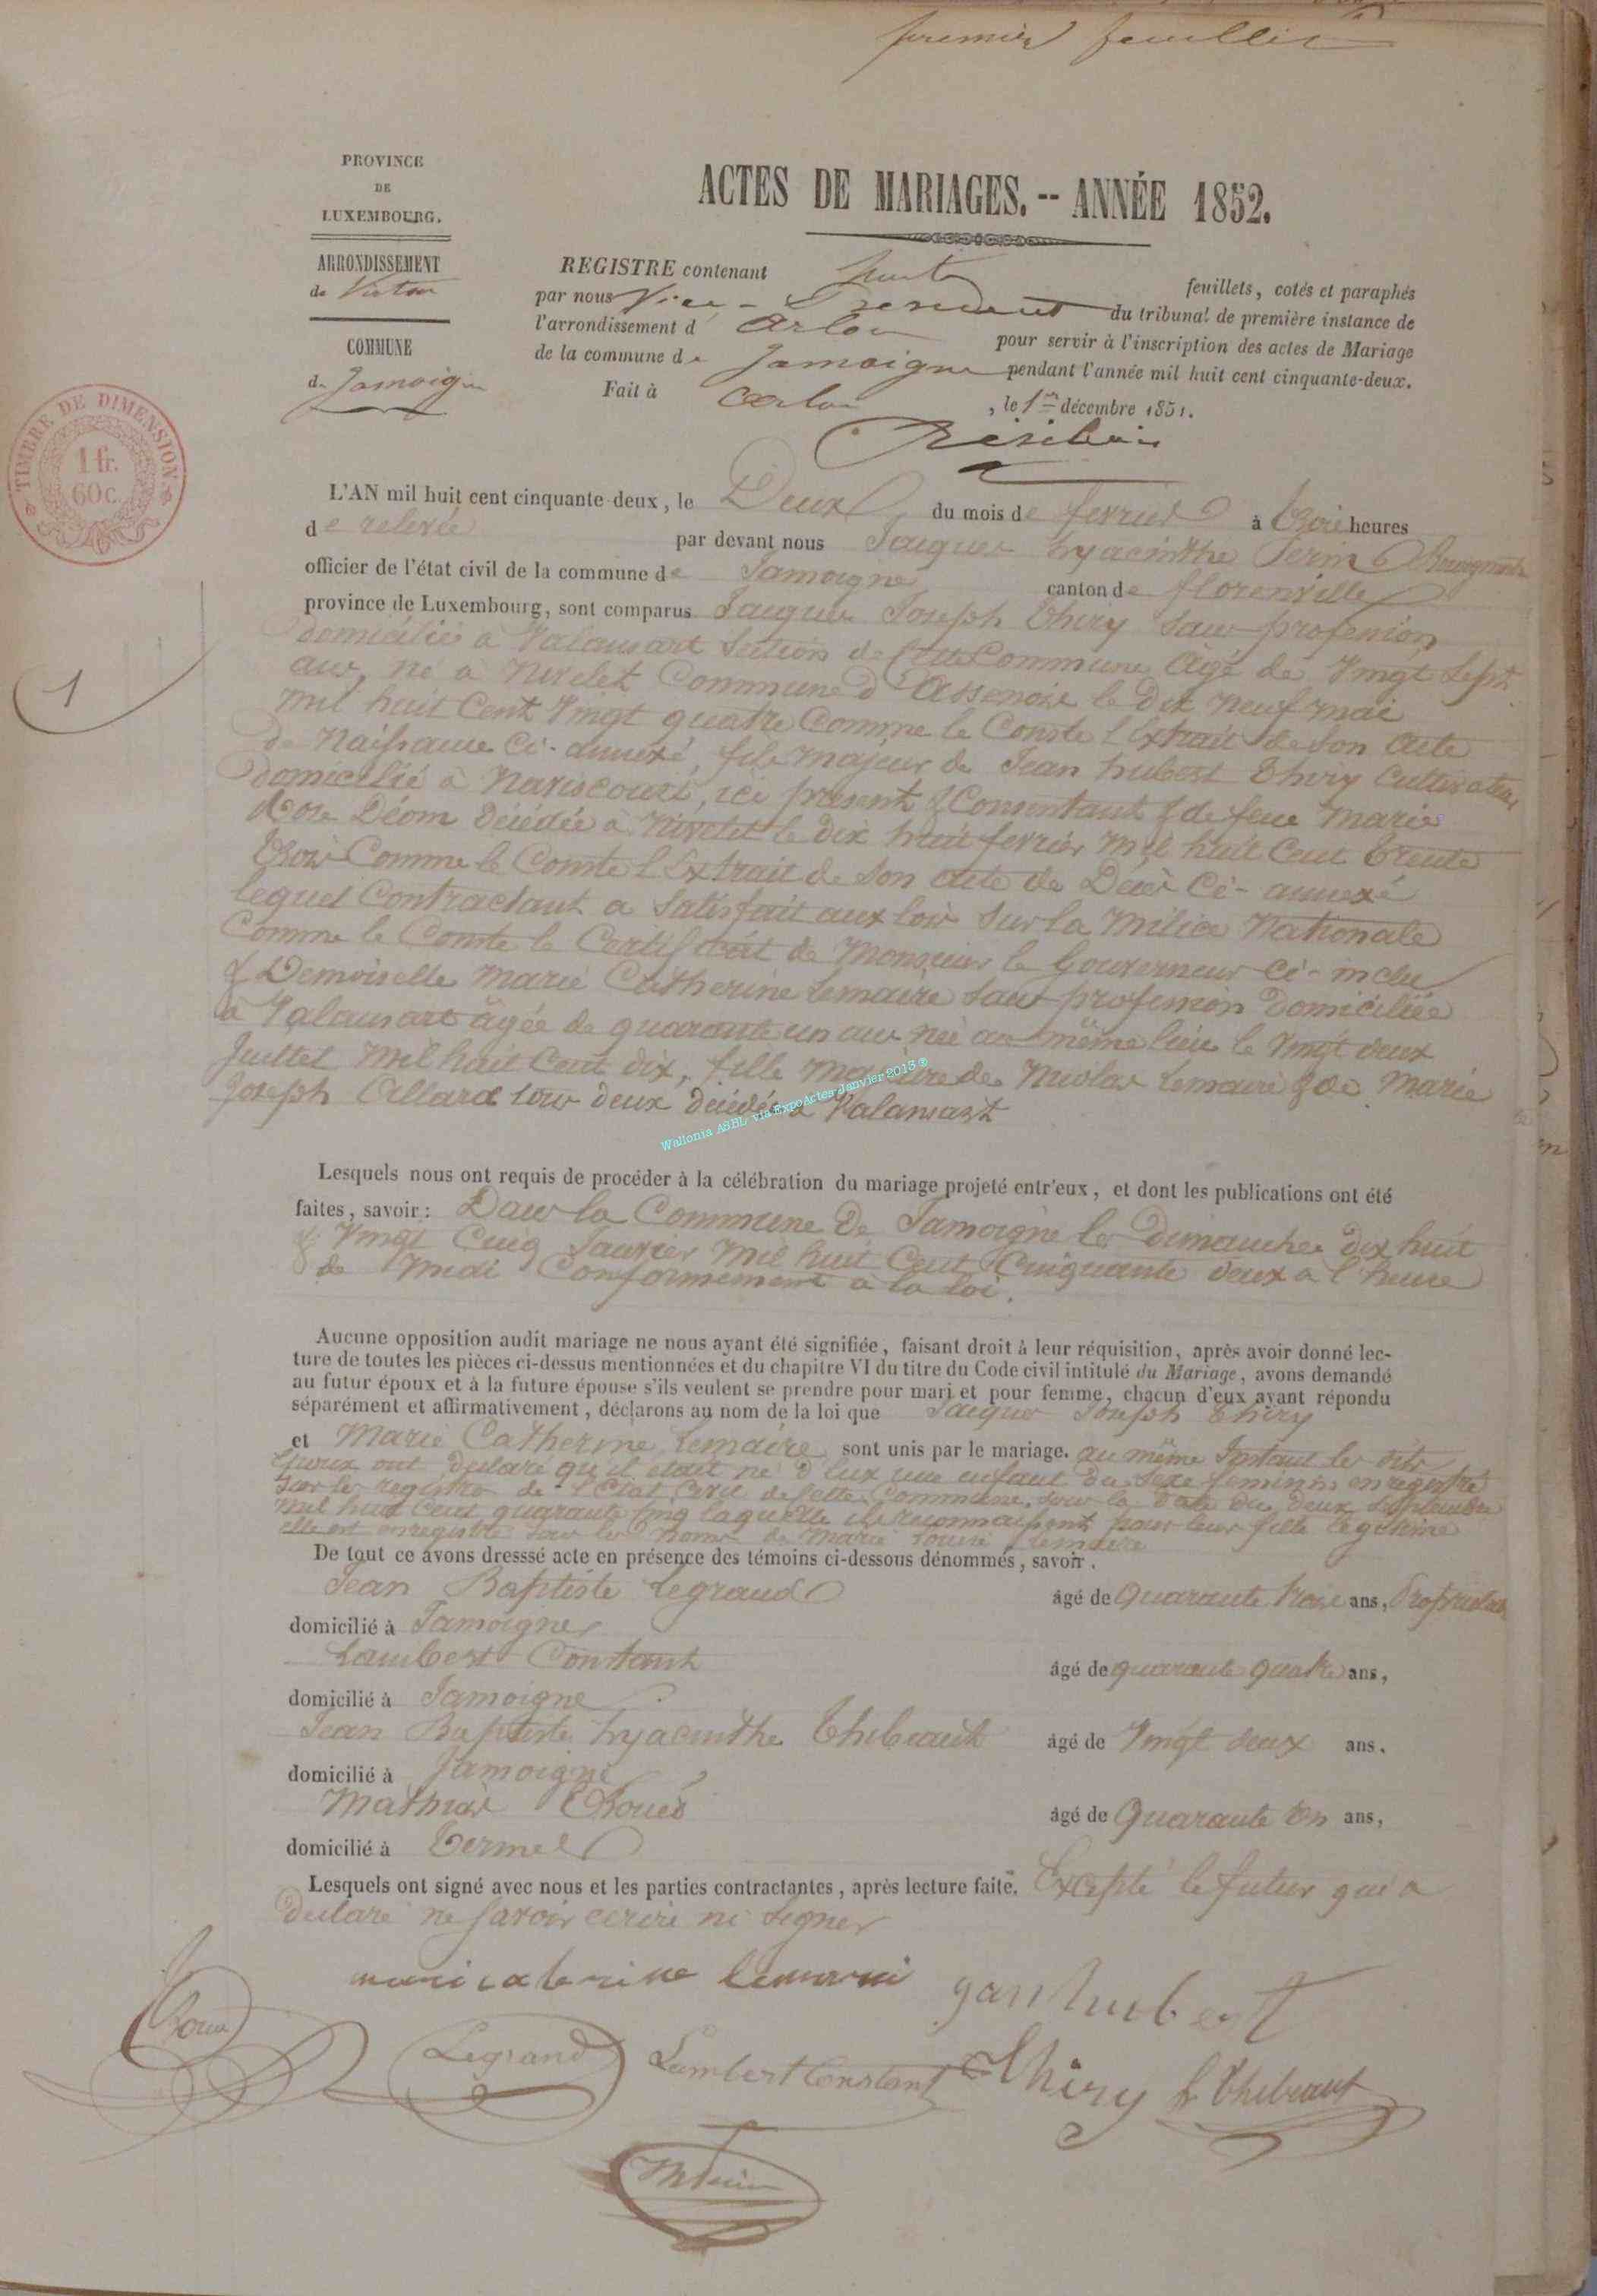 premier feuillet
PROVINCE
DE
LUXEMBOURG.
ARRONDISSEMENT
de Virton
COMMUNE
de Jamoigne
TIMBRE DE DIMENSION
1 fr.
60 c.
ACTES DE MARIAGES. -- ANNÉE 1852.
REGISTRE contenant huit feuillets, cotés et paraphés
par nous Vice-President du tribunal de première instance de
l'arrondissement d'Arlon pour servir à l'inscription des actes de Mariage
de la commune de Jamoigne pendant l'année mil huit cent cinquante-deux.
Fait à Arlon, le 1er décembre 1851.
1
L'AN mil huit cent cinquante-deux, le Deux du mois de fevrier à trois heures
de relevée par devant nous Jacques hyacinthe Perin Bourgmestre
officier de l'état civil de la commune de Jamoigne canton de florenville
province de Luxembourg, sont comparus Jacques Joseph Thiry Sans profession
domicilié à Valansart Section de cette Commune Agé de Vingt Sept
ans, né à Nivelet Commune d'Assenois le Dix Neuf mai
mil huit Cent Vingt quatre Comme le Conste l'Extrait de son acte
de Naissance Ci-annexé, fils majeur de Jean hubert Thiry Cultivateur
domicilié à Nariscourt, ici present & Consentant & de feue Marie
Rose Déom Décédée à Nivelet le dix huit fevrier mil huit Cent trente
trois Comme le Conste l'Extrait de Son acte de Décès Ci-annexé
lequel Contractant a Satisfait aux lois Sur la Milice Nationale
Comme le Conste le Certificat de Monsieur le Gouverneur Ci-inclu
& Demoiselle Marie Catherine Lemaire Sans profession Domiciliée
à Valansart âgée de quarante un ans née au même lieu le Vingt deux
Juillet Mil huit Cent dix, fille Majeure de Nicolas Lemaire & de Marie
Joseph Allard tous deux décédés à Valansart
Wallonia ASBL via ExpoActes Janvier 2013 ®
Lesquels nous ont requis de procéder à la célébration du mariage projeté entr'eux, et dont les publications ont été
faites, savoir: Dans la Commune De Jamoigne les Dimanches dix huit
& Vingt Cinq Janvier Mil huit Cent Cinquante deux à l'heure
de Midi Conformement à la loi.
Aucune opposition audit mariage ne nous ayant été signifiée, faisant droit à leur réquisition, après avoir donné lec-
ture de toutes les pièces ci-dessus mentionnées et du chapitre VI du titre du Code civil intitulé du Mariage, avons demandé
au futur époux et à la future épouse s'ils veulent se prendre pour mari et pour femme, chacun d'eux ayant répondu
séparément et affirmativement, déclarons au nom de la loi que Jacques Joseph Thiry
et Marie Catherine Lemaire sont unis par le mariage. au même Instant les dits
Epoux ont Declaré qu'il etait né d'Eux une enfant du Sexe feminin enregistré
Sur les registres de l'Etat Civil de Cette Commune, Sous la Date du deux Septembre
Mil huit Cent quarante Cinq laquelle ils reconnaissent pour leur fille legitime
elle est enregistré sous les noms de Marie Louise Lemaire
De tout ce avons dresssé acte en présence des témoins ci-dessous dénommés, savoir.
Jean Baptiste Legrand âgé de Quarante trois ans, Propriétaire
domicilié à Jamoigne
Lambert Constant âgé de quarante quatre ans,
domicilié à Jamoigne
Jean Baptiste hyacinthe Thibeaut âgé de Vingt deux ans.
domicilié à Jamoigne
Mathias Choués âgé de Quarante Un ans,
domicilié à Termes
Lesquels ont signé avec nous et les parties contractantes, après lecture faite. Excepté le futur qui a
declaré ne Savoir ecrire ni Signer
marie caterine lemaire
gan hubert
Legrand Lambert Constant Thiry h Thibeaut